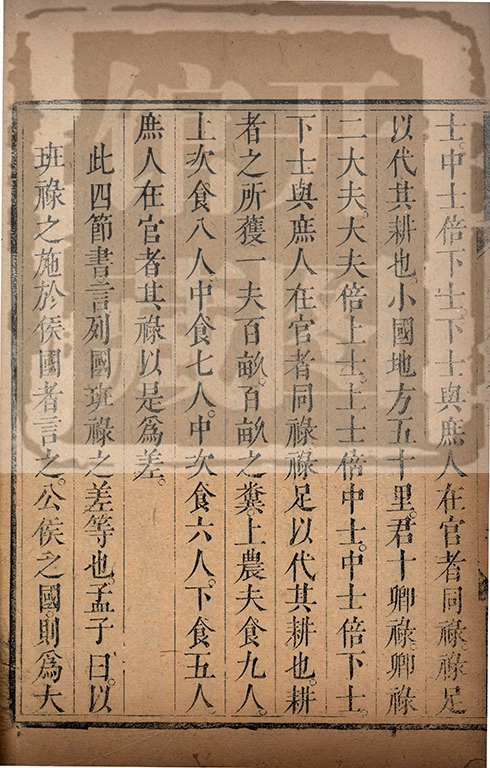 士。中士倍下士。下士與庶人在官者同祿。祿足
以代其耕也。小國地方五十里。君十卿祿。卿祿
二大夫。大夫倍上士。上士倍中士。中士倍下士。
下士與庶人在官者同祿。祿足以代其耕也。耕
者之所獲一夫百畝。百畝之糞。上農夫食九人。
上次食八人。中食七人。中次食六人。下食五人
庶人在官者其祿以是爲差。
此四節書言列國班祿之差等也。孟子曰。以
班祿之施於侯國者言之。公侯之國。則爲大